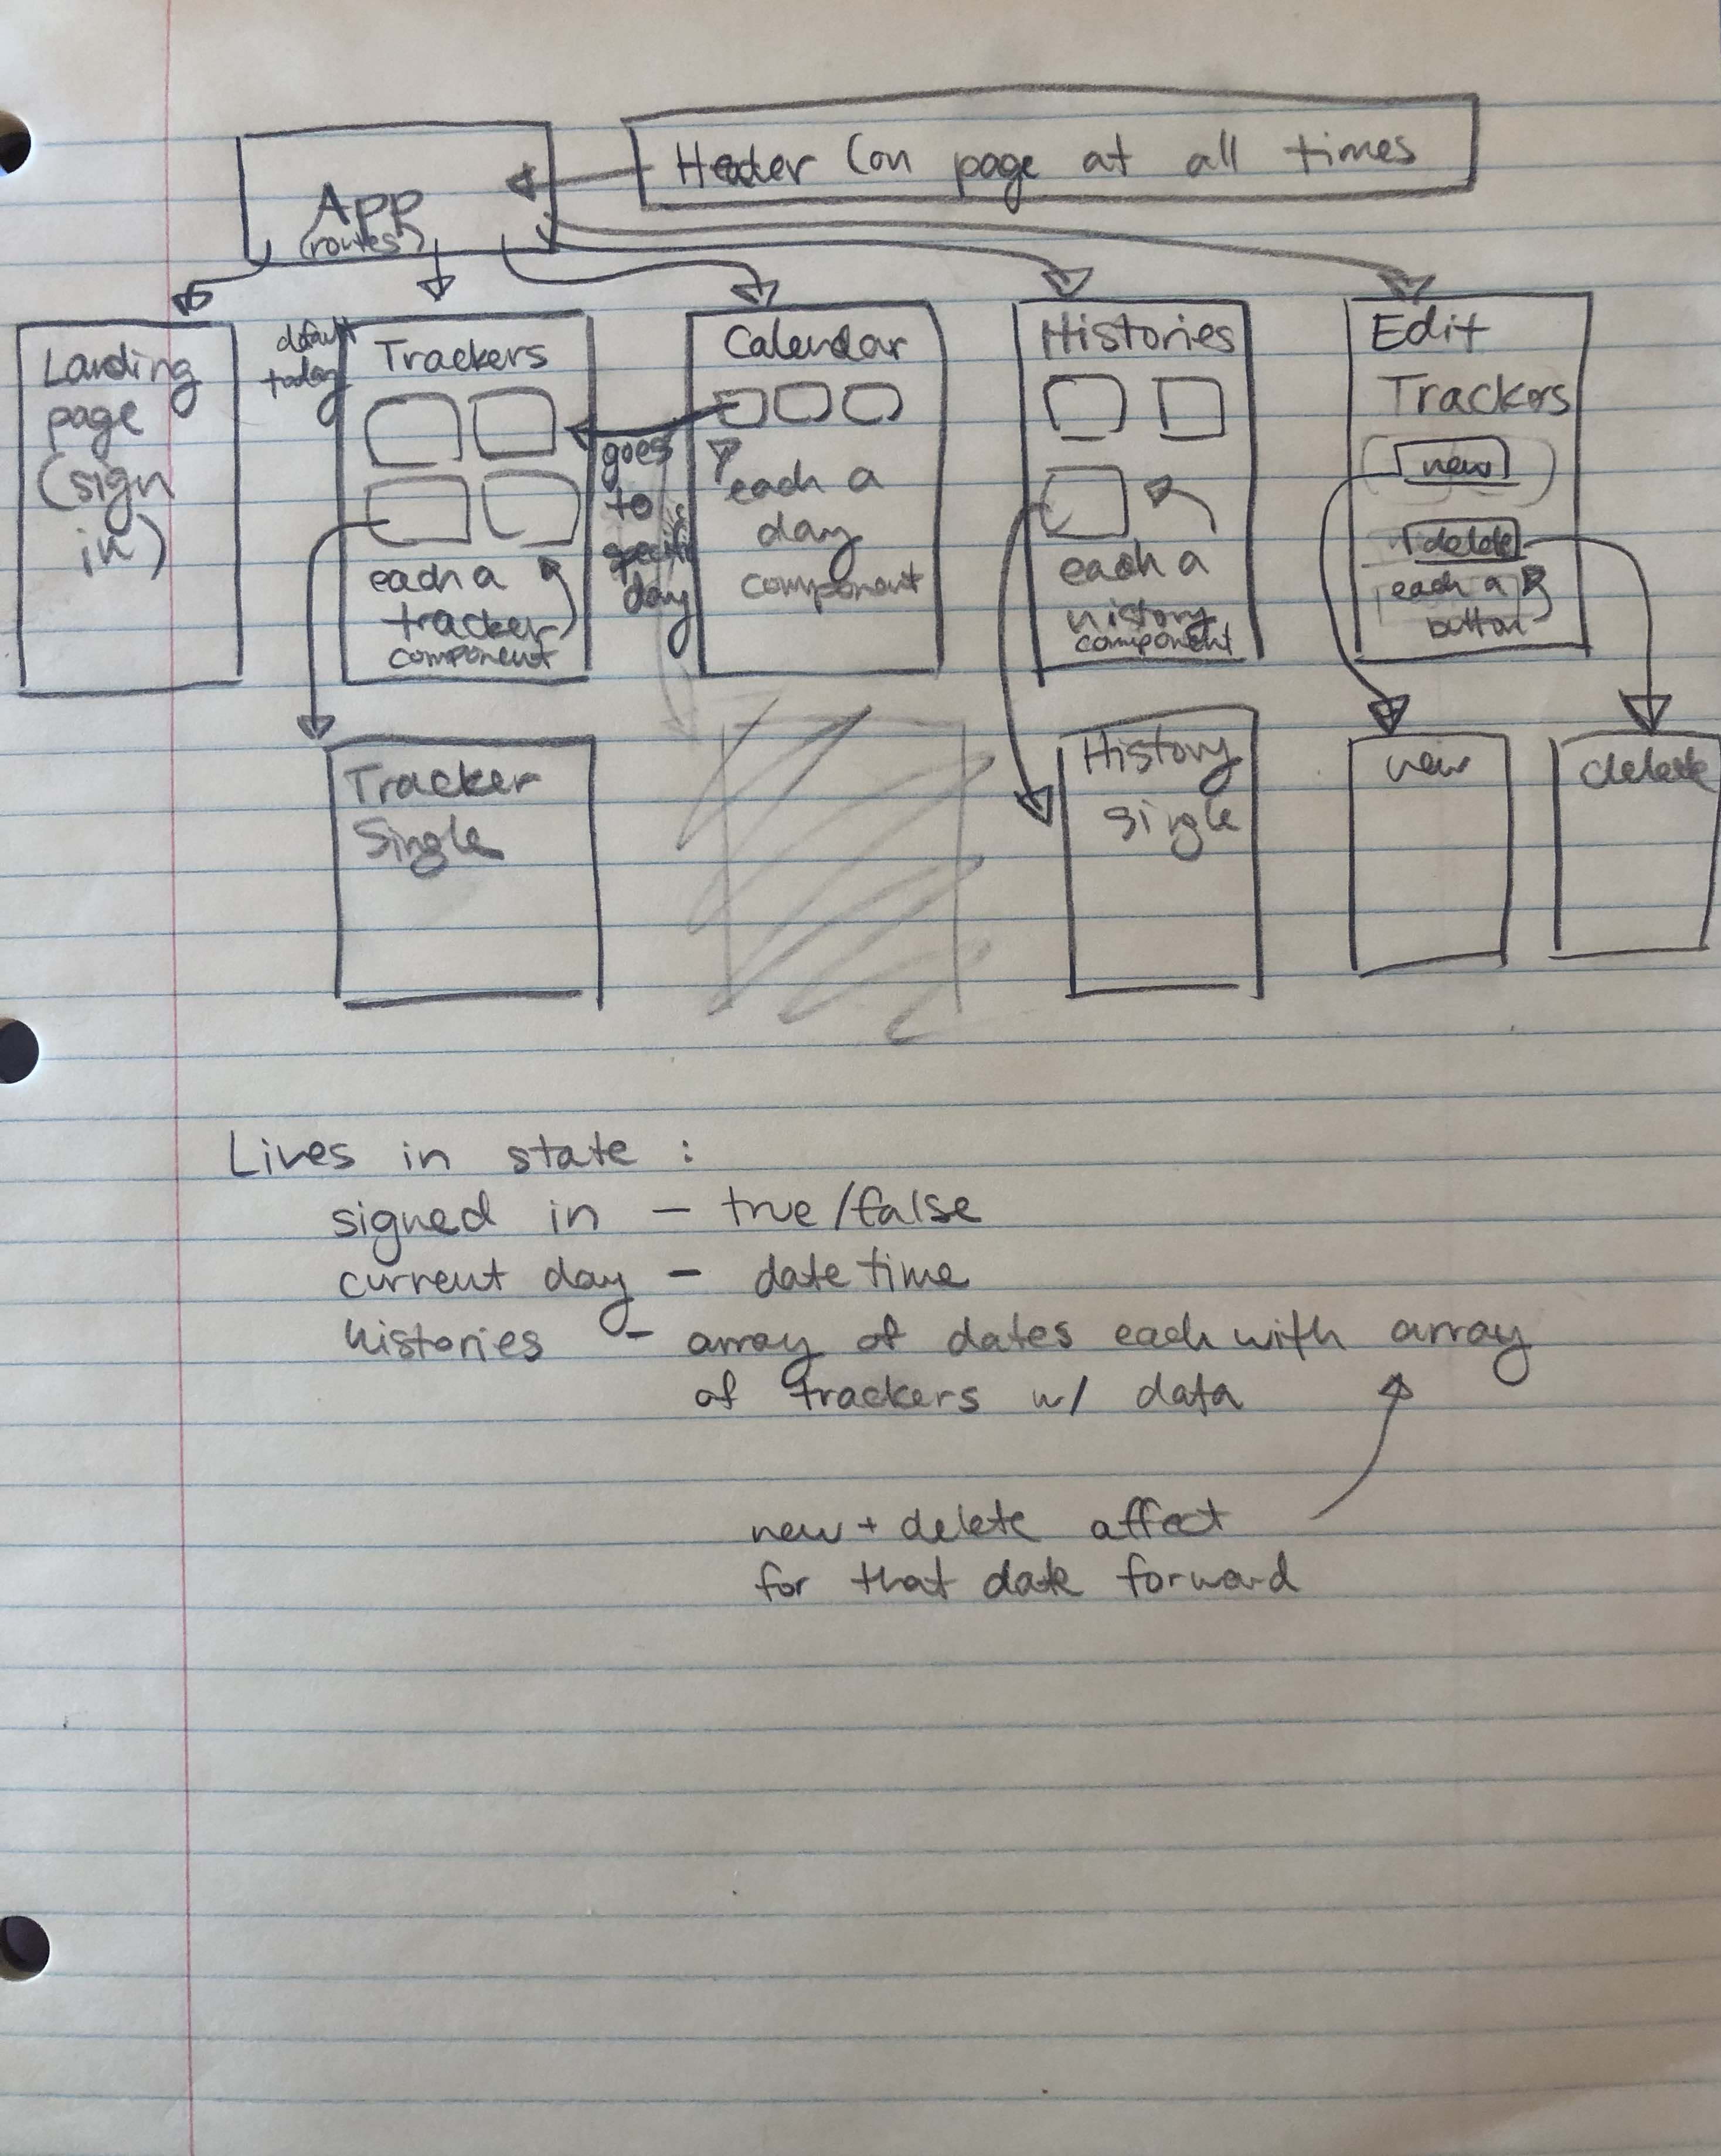 Header (on page at all times
App
(routes)
Landing
page
(sign
in)
default
today
Trackers
each a
tracker
component
goes
to
specific
day
Calendar
each a
day
component
Histories
each a
history
component
Edit
Trackers
new
delete
each a
button
Tracker
Single
History
single
new
delete
Lives in state :
signed in - true/false
current day - date time
histories - array of dates each with array
of trackers w/ data
new + delete affect
for that date forward